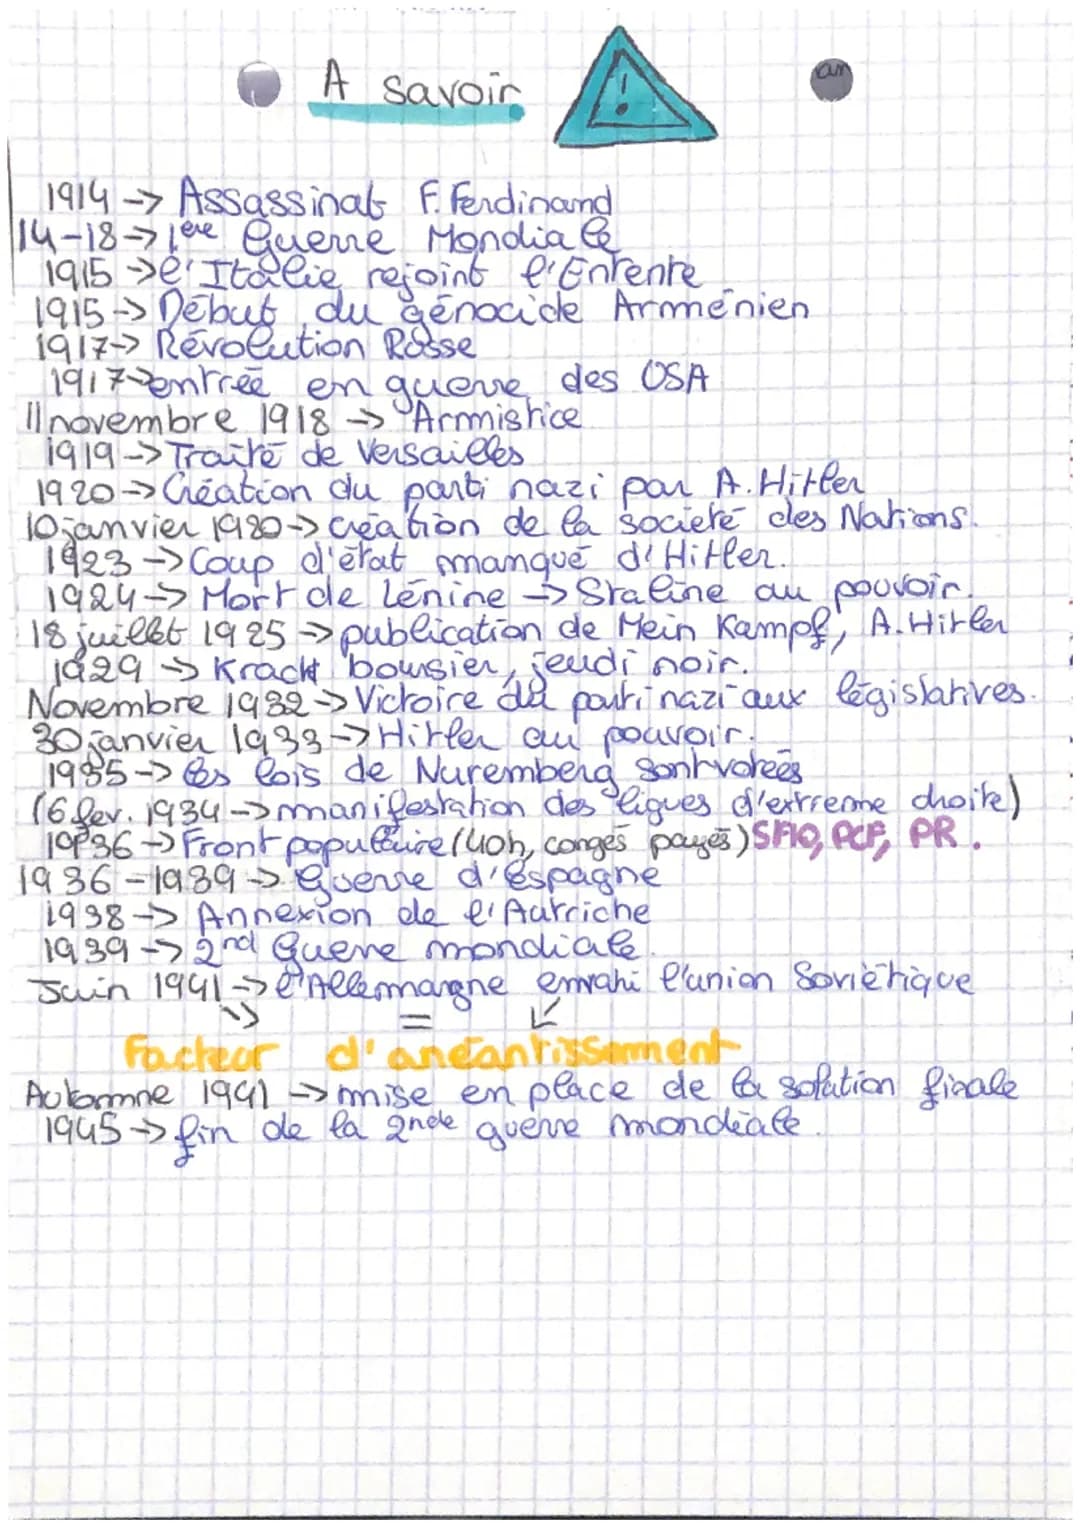 A savoir
!
1914 -> Assassinat F. Ferdinand
14-18 -> 1ère Guerre Mondiale
1915 -> l'Italie rejoint l'Entente
1915 -> Début du génocide Arménien
1917 -> Révolution Russe
1917 -> entrée en guerre des USA
11 novembre 1918 -> Armistice
1919 -> Traité de Versailles
1920 -> Création du parti nazi par A. Hitler
10 janvier 1920 -> création de la societé des Nations.
1923 -> Coup d'état manqué d'Hitler.
1924 -> Mort de Lénine -> Staline au pouvoir.
18 juillet 1925 -> publication de Mein Kampf, A. Hitler
1929 -> Krach boursier, jeudi noir.
Novembre 1932 -> Victoire du parti nazi aux législatives.
30 janvier 1933 -> Hitler au pouvoir.
1935 -> les lois de Nuremberg sont votées
(6 fev. 1934 -> manifestation des ligues d'extreme droite)
1936 -> Front populaire (40h, congés payés) SFIO, PCF, PR.
1936-1939 -> Guerre d'Espagne
1938 -> Annexion de l'Autriche
1939 -> 2nd Guerre mondiale.
Juin 1941 -> l'Allemangne envahi l'union Soviétique
=
Facteur d'anéantissement
Automne 1941 -> mise en place de la solution finale
1945 -> fin de la 2nde guerre mondiale.